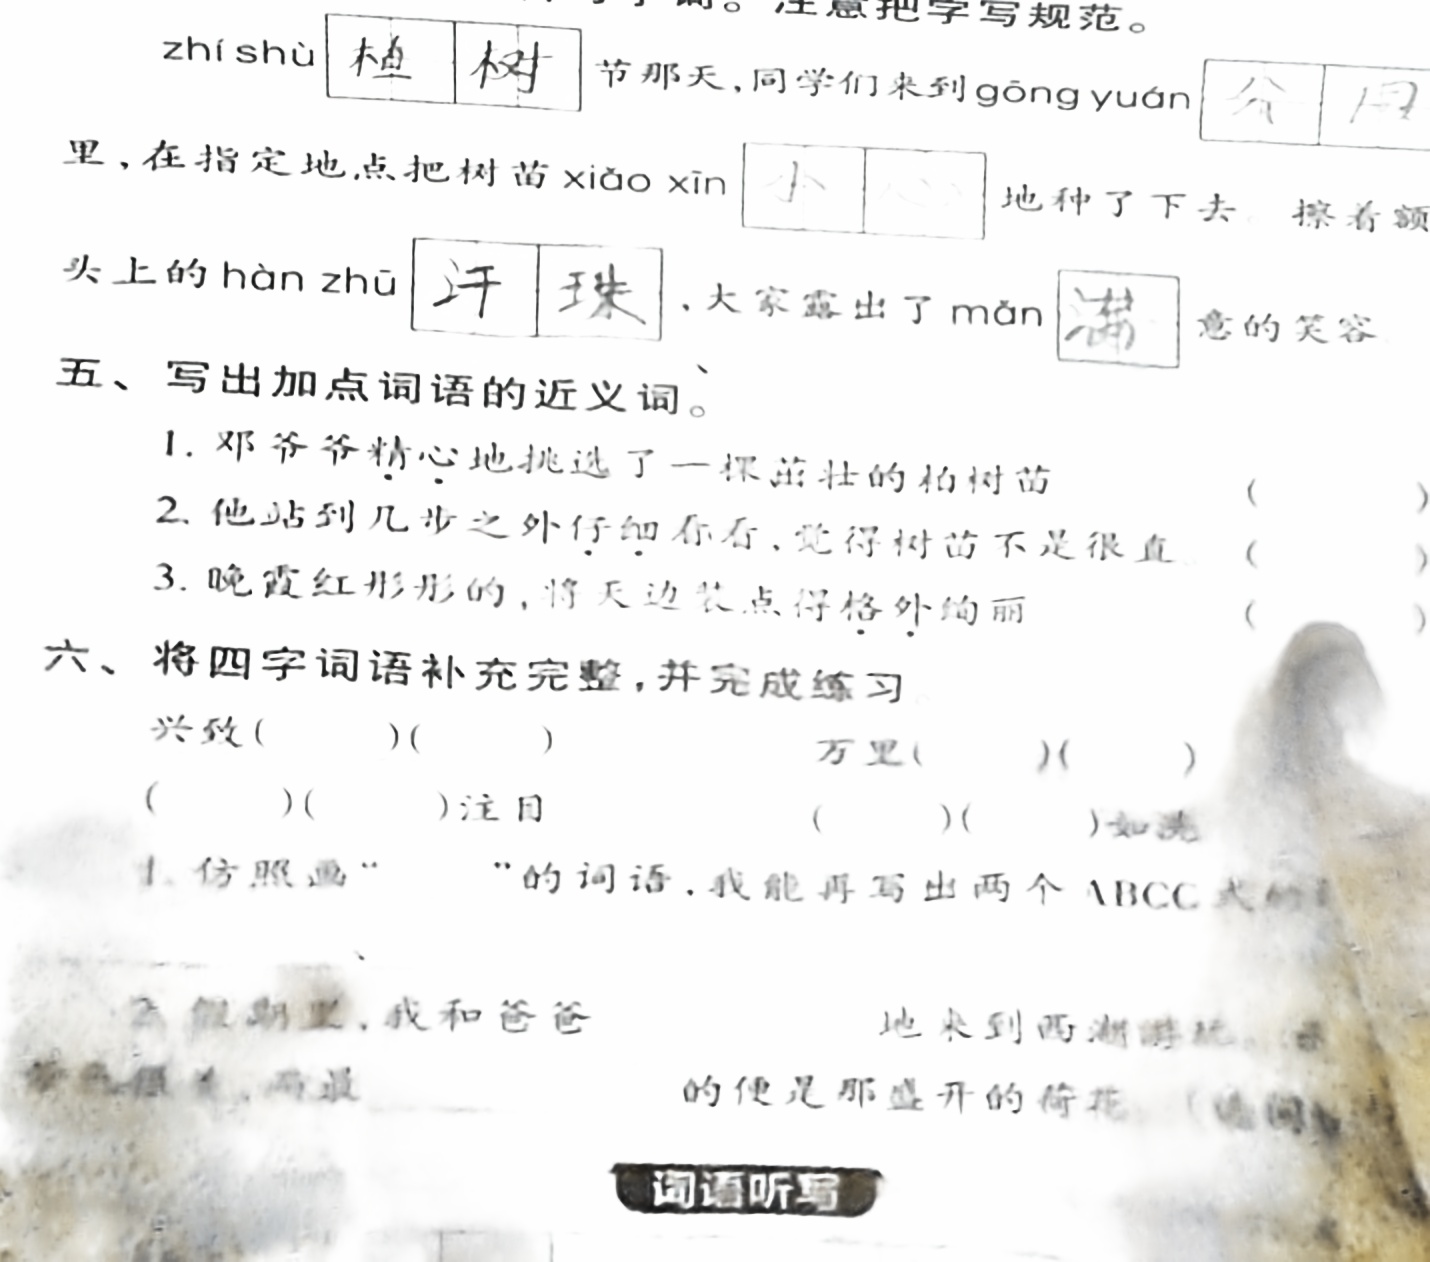 注意把字写规范。
zhí shù 植树 节那天,同学们来到 gōng yuán 公
里,在指定地点把树苗 xiǎo xīn 小心 地种了下去 擦着额
头上的 hàn zhū 汗珠 、大家露出了 mǎn 满 意的笑容
五、写出加点词语的近义词。
1. 邓爷爷精心地挑选了一棵茁壮的柏树苗 ( )
2. 他站到几步之外仔细看看、觉得树苗不是很直 ( )
3. 晚霞红彤彤的,将天边装点得格外绚丽 ( )
六、将四字词语补充完整,并完成练习
兴致( )( ) 万里( )( )
( )( )注目 ( )( )如洗
1. 仿照画“ ”的词语,我能再写出两个 ABCC 式的
2. 假期里,我和爸爸 地来到西湖游玩
而最 的便是那盛开的荷花
词语听写